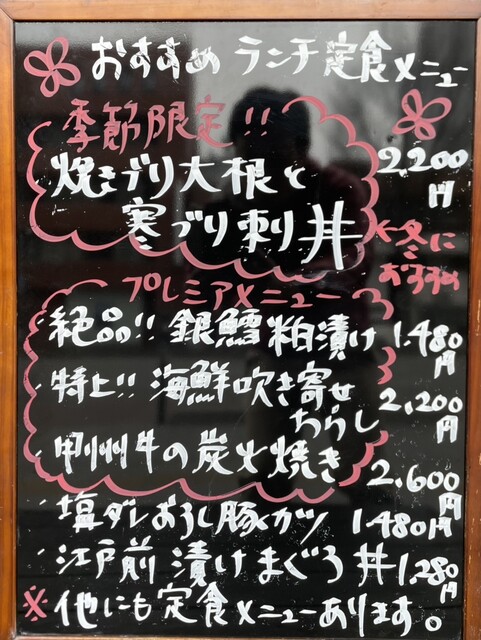 おすすめ ランチ定食メニュー
季節限定!!
焼きブリ大根と
寒ブリ刺り丼
2,200円
←冬に
おすすめ
プレミアメニュー
絶品!! 銀鱈粕漬け 1.480円
特上!! 海鮮吹き寄せ
ちらし 2,200円
甲州牛の炭火焼き 2,600円
・塩ダレおろし豚カツ 1480円
・江戸前 漬けまぐろ丼 1,280円
※他にも定食メニューあります。